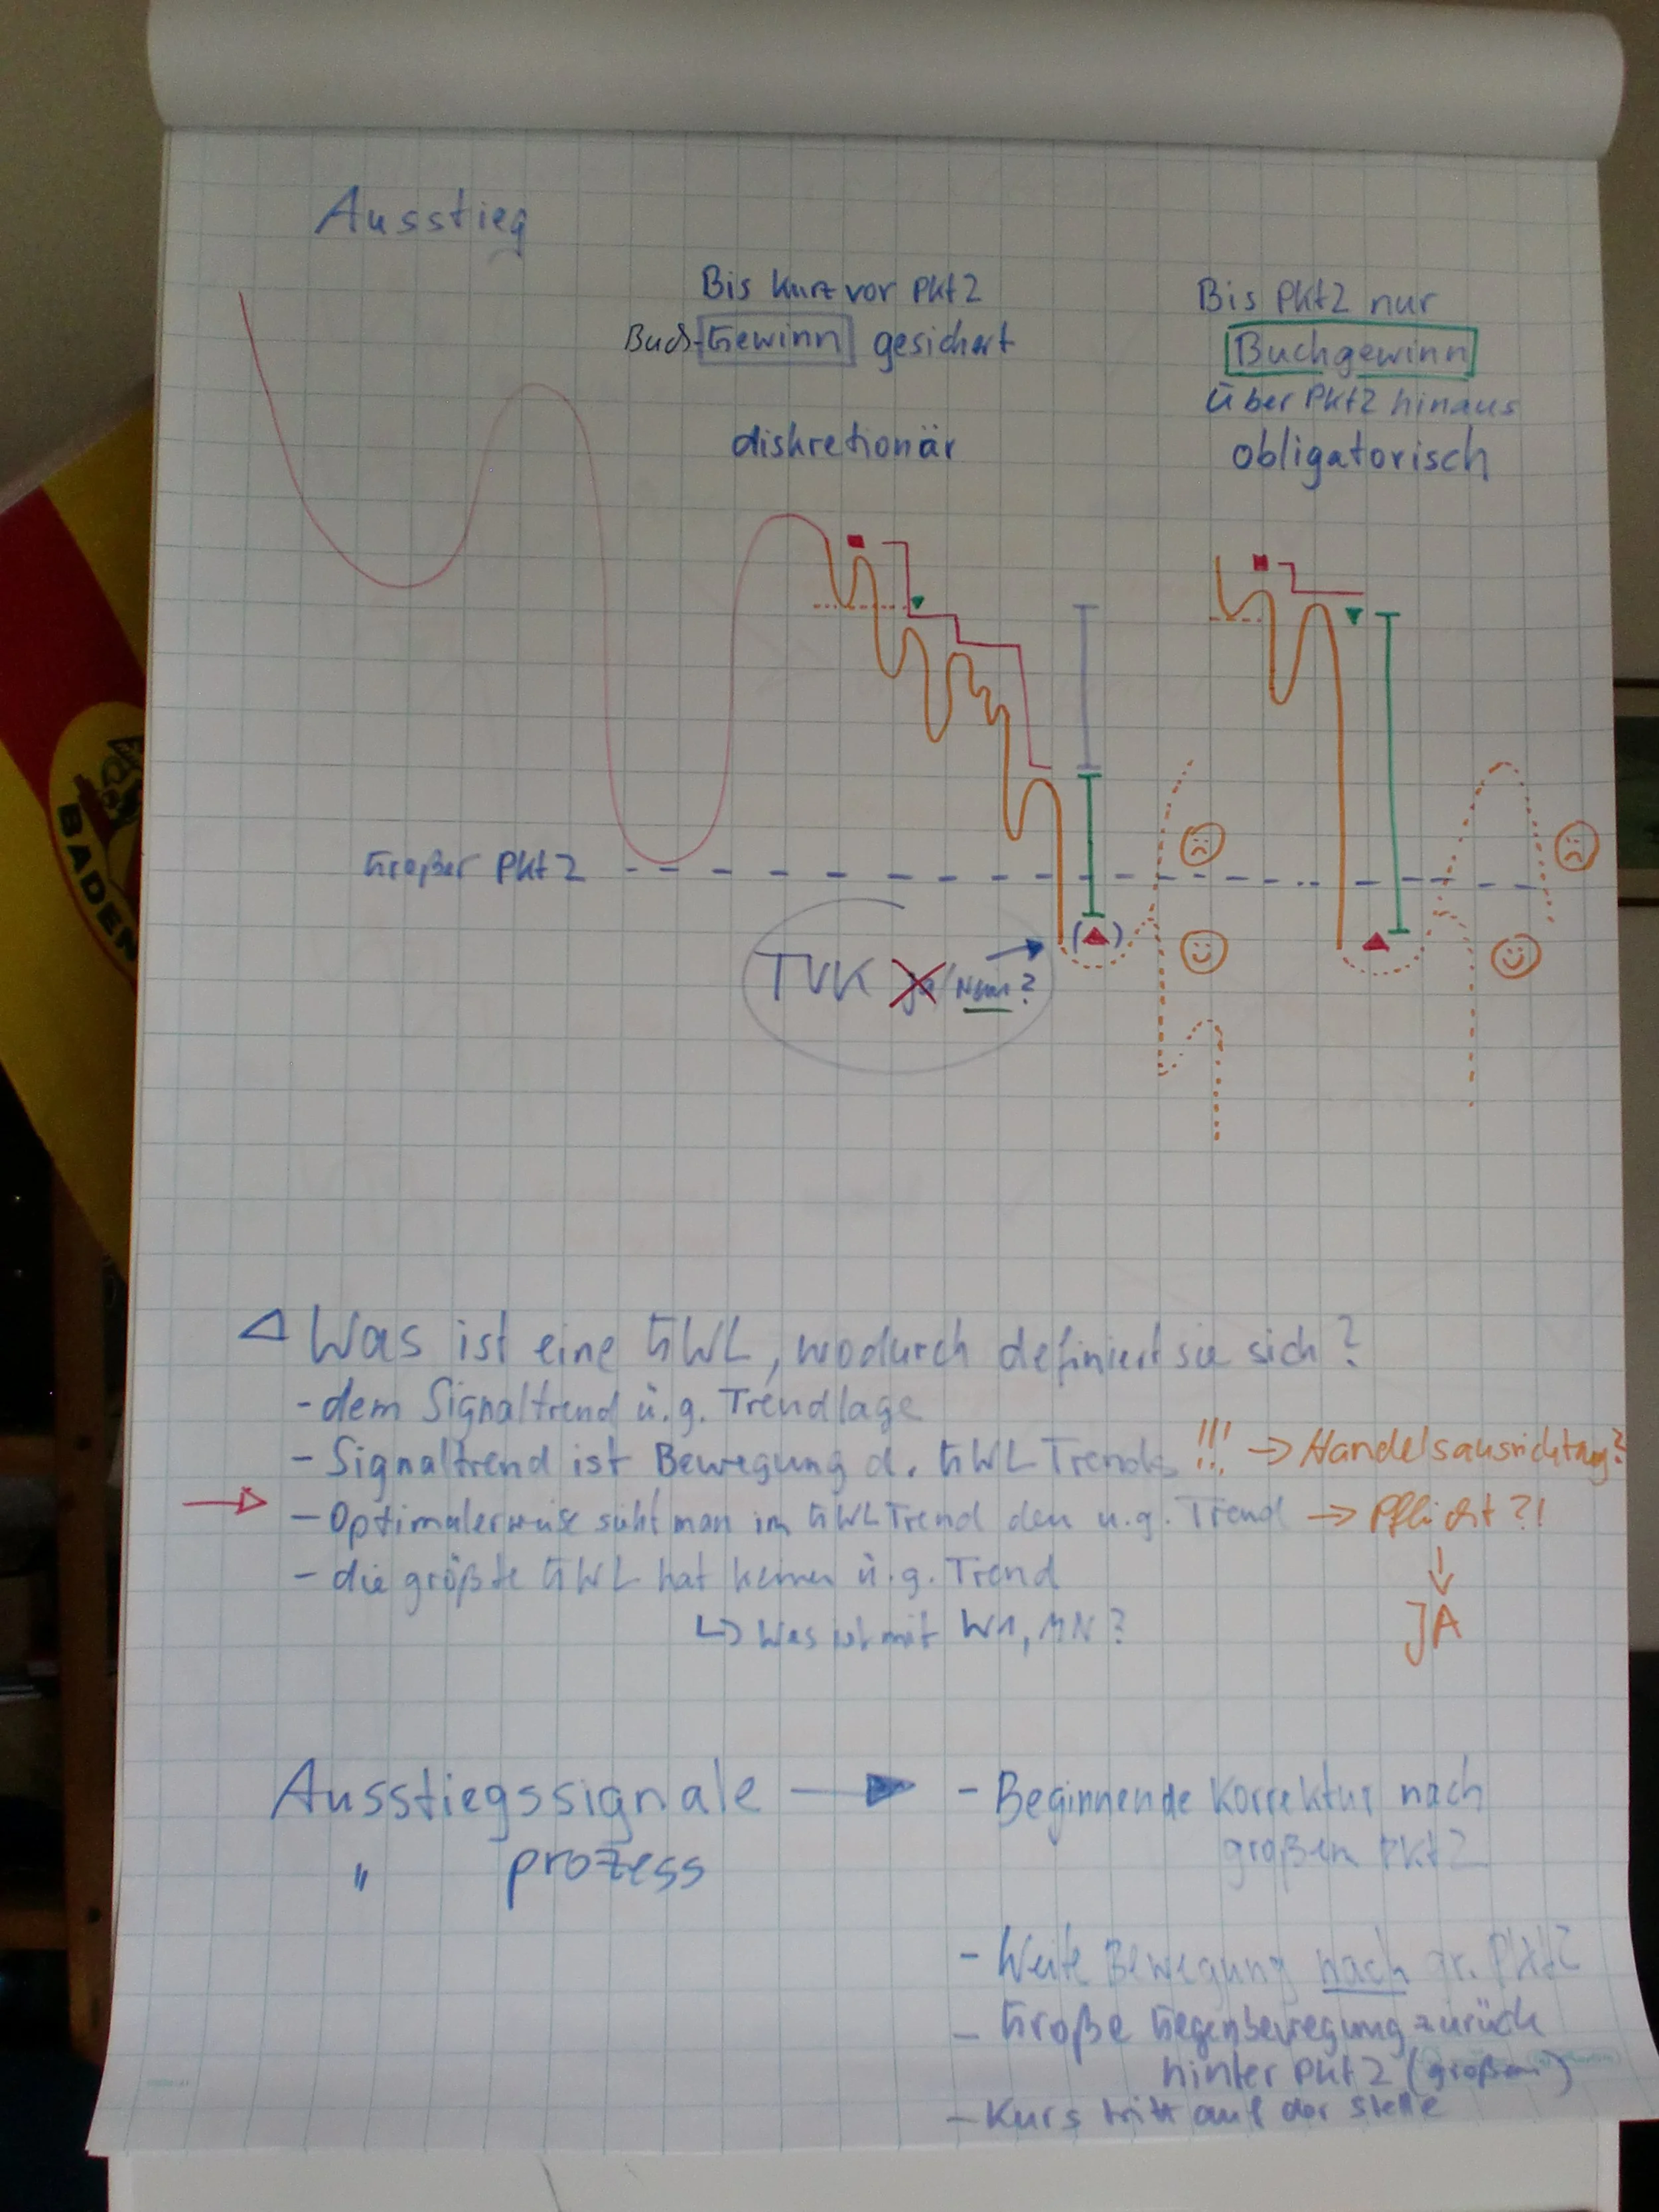 Ausstieg
Bis kurz vor Pkt2
Buch-Gewinn gesichert
diskretionär
Bis Pkt2 nur
Buchgewinn
über Pkt2 hinaus
obligatorisch
Großer Pkt2
TVK Ja/Nein?
( )
BADEN
Was ist eine GWL, wodurch definiert sie sich?
- dem Signaltrend ü.g. Trendlage
- Signaltrend ist Bewegung d. GWL Trends !!! → Handelsausrichtung?
→ - Optimalerweise sieht man im GWL Trend den u.g. Trend → Pflicht?!
↓
JA
- die größte GWL hat keinen ü.g. Trend
↳ Was ist mit W1, MN?
Ausstiegssignale → - Beginnende Korrektur nach
großem Pkt2
" prozess
- Weite Bewegung nach gr. Pkt2
- Große Gegenbewegung zurück
hinter Pkt2 (großen)
- Kurs tritt auf der Stelle